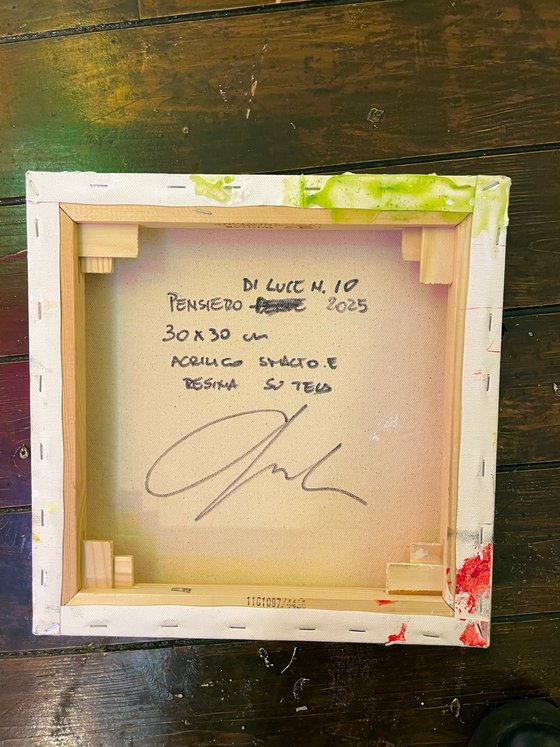 DI LUCE N. 10
PENSIERO 2025
30 x 30 cm
ACRILICO SMALTO E
RESINA SU TELA